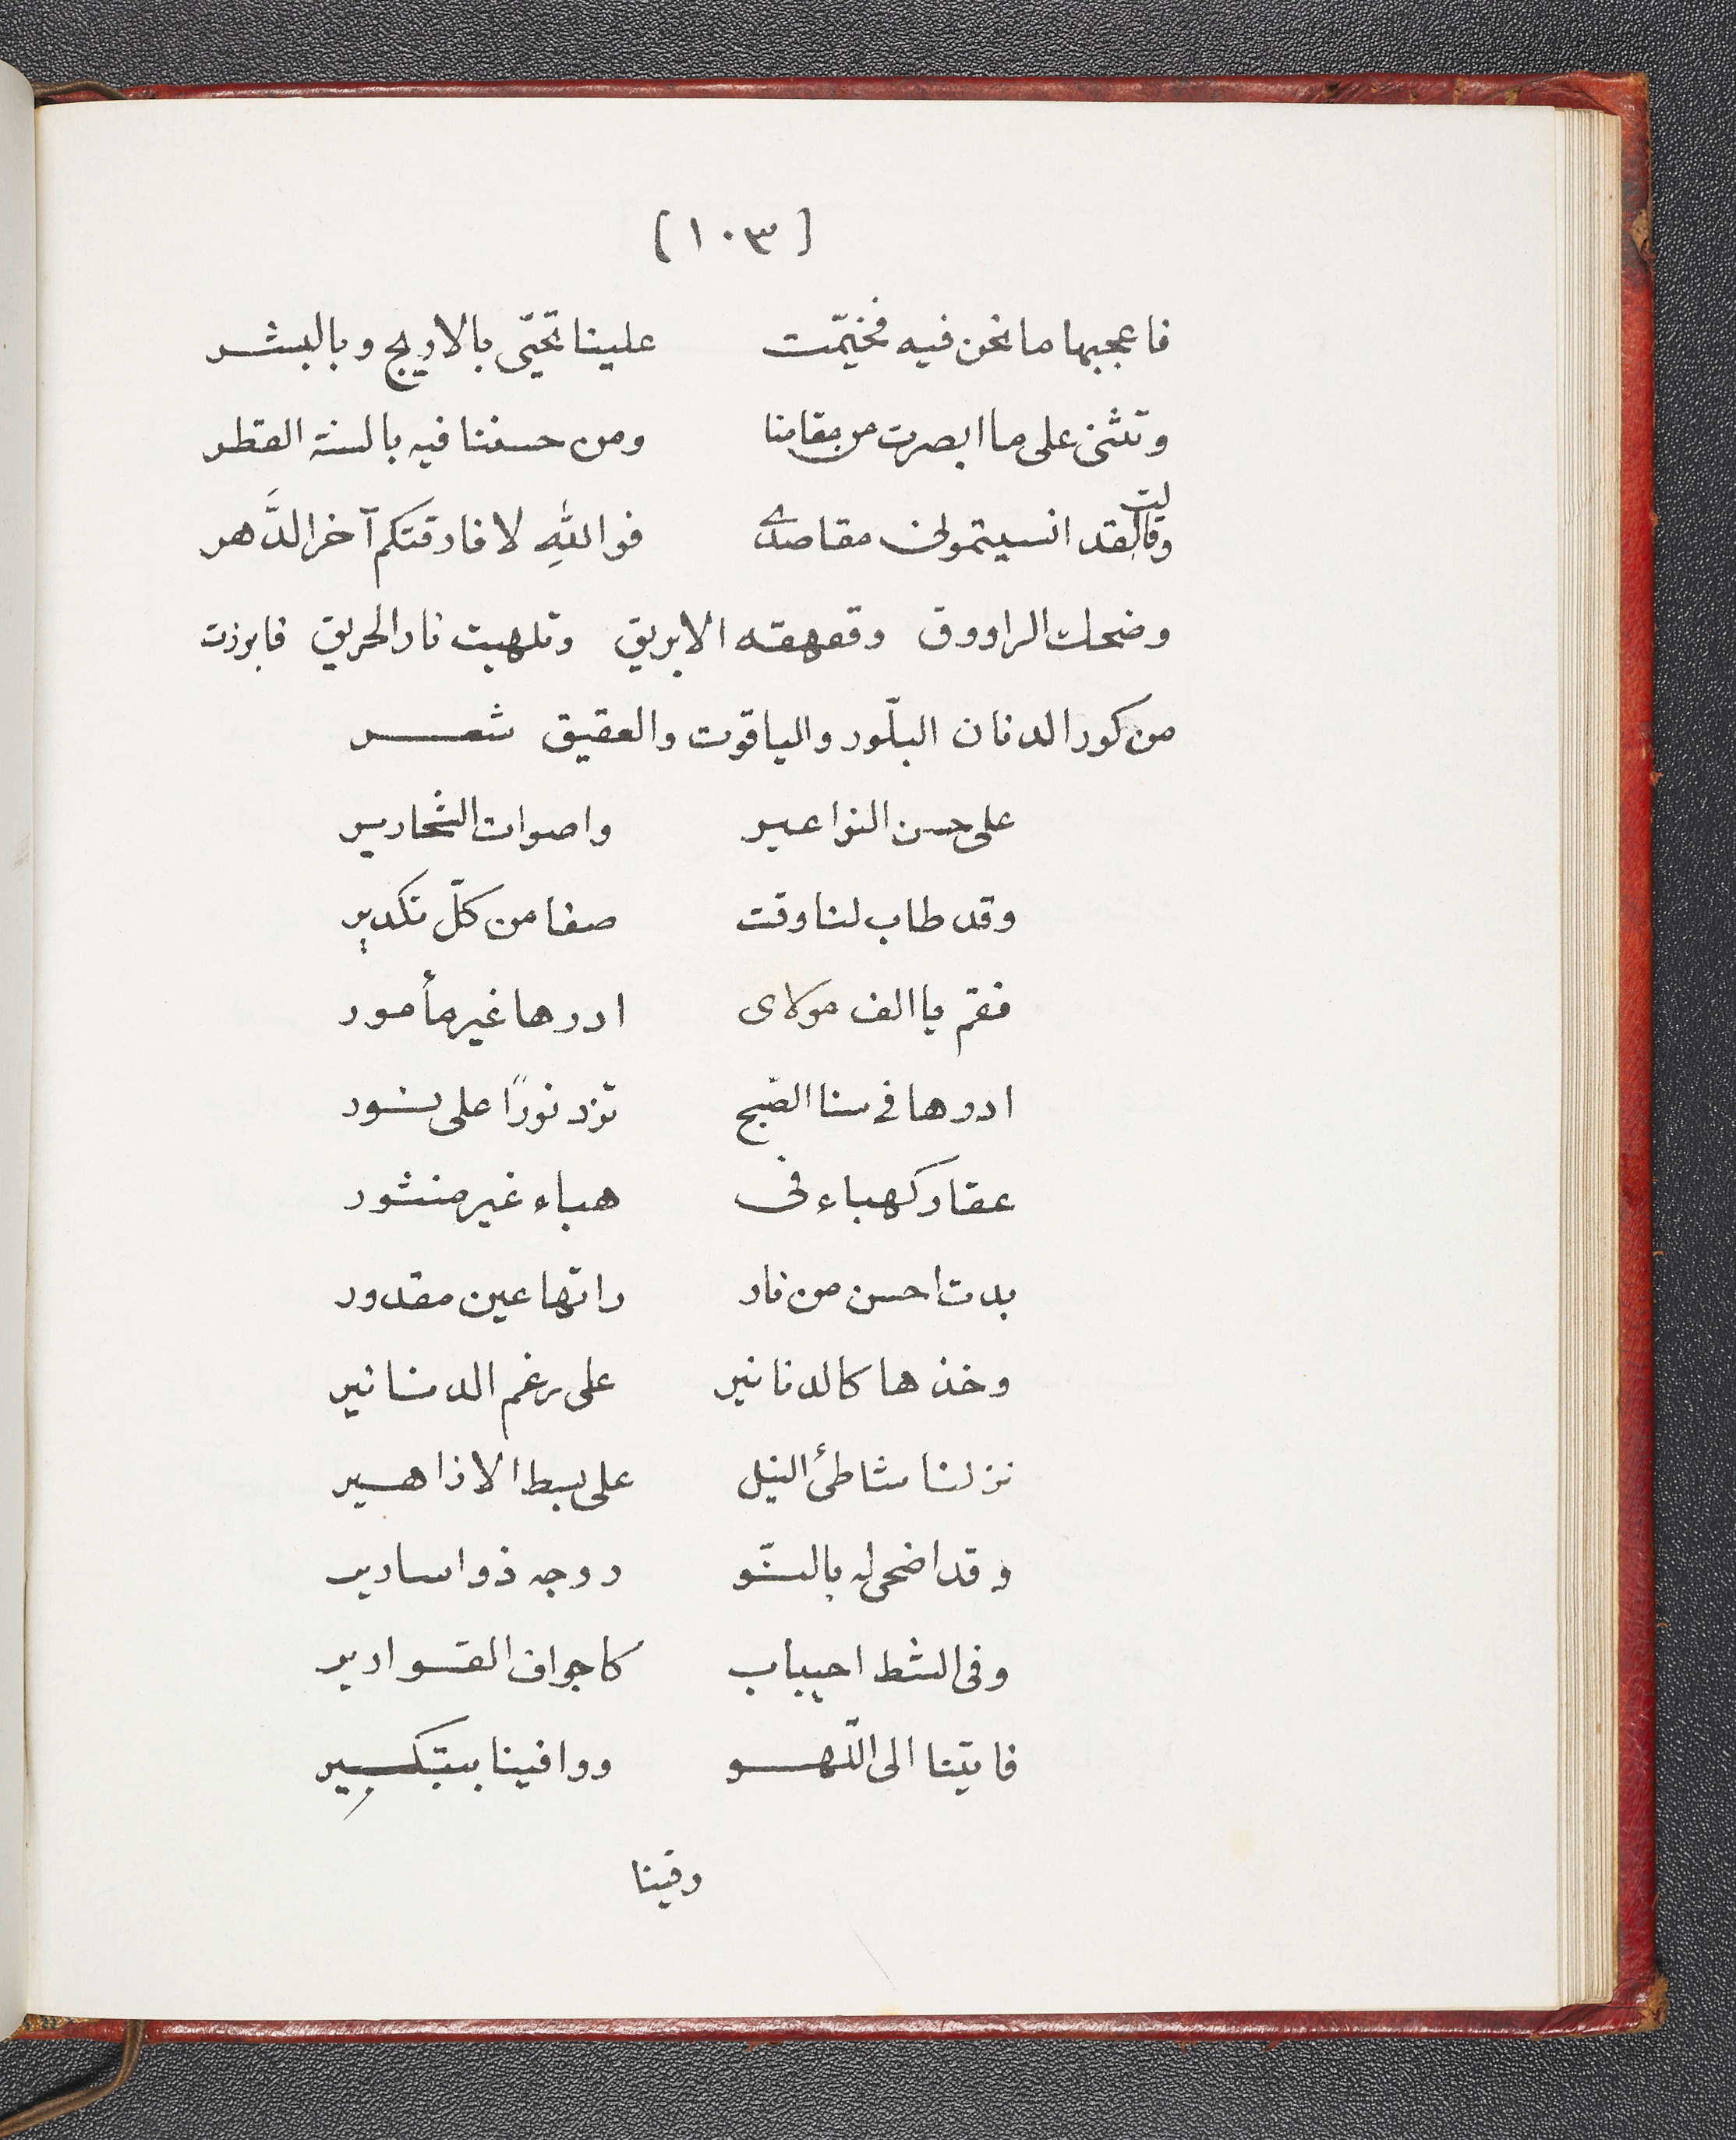 [ ١٠٣ ]
فاعجبها ما نحن فيه فخيّمت علينا تحيّى بالاريج وبالبشر
وتثنى على ما ابصرت من مقامنا ومن حسننا فيه بالسنة القطر
وقالت لقد انسيتمونى مقاصدى فواللهِ لا فارقتكم آخر الدَّهر
وضحك الراووق وقهقه الابريق وتلهبت نار الحريق فابرزت
من كور الدنان البلّور والياقوت والعقيق شعر
على حسن النواعير واصوات الشحارير
وقد طاب لنا وقت صفا من كلّ تكدير
فقم يا الف مولاى ادرها غير مأمور
ادرها فى سنا الصّبح تزد نورًا على نور
عقار كهباء فى هباء غير منثور
بدت احسن من نار راتها عين مقدور
وخذها كالدنانير على رغم الدنانير
نزلنا شاطئ النيل على بسط الازاهير
وقد اضحى له بالمو ر وجه ذو اسارير
وفى الشط احبباب كاجواف القوارير
فايتنا الى اللّهو ووافينا بتبكير
وفينا